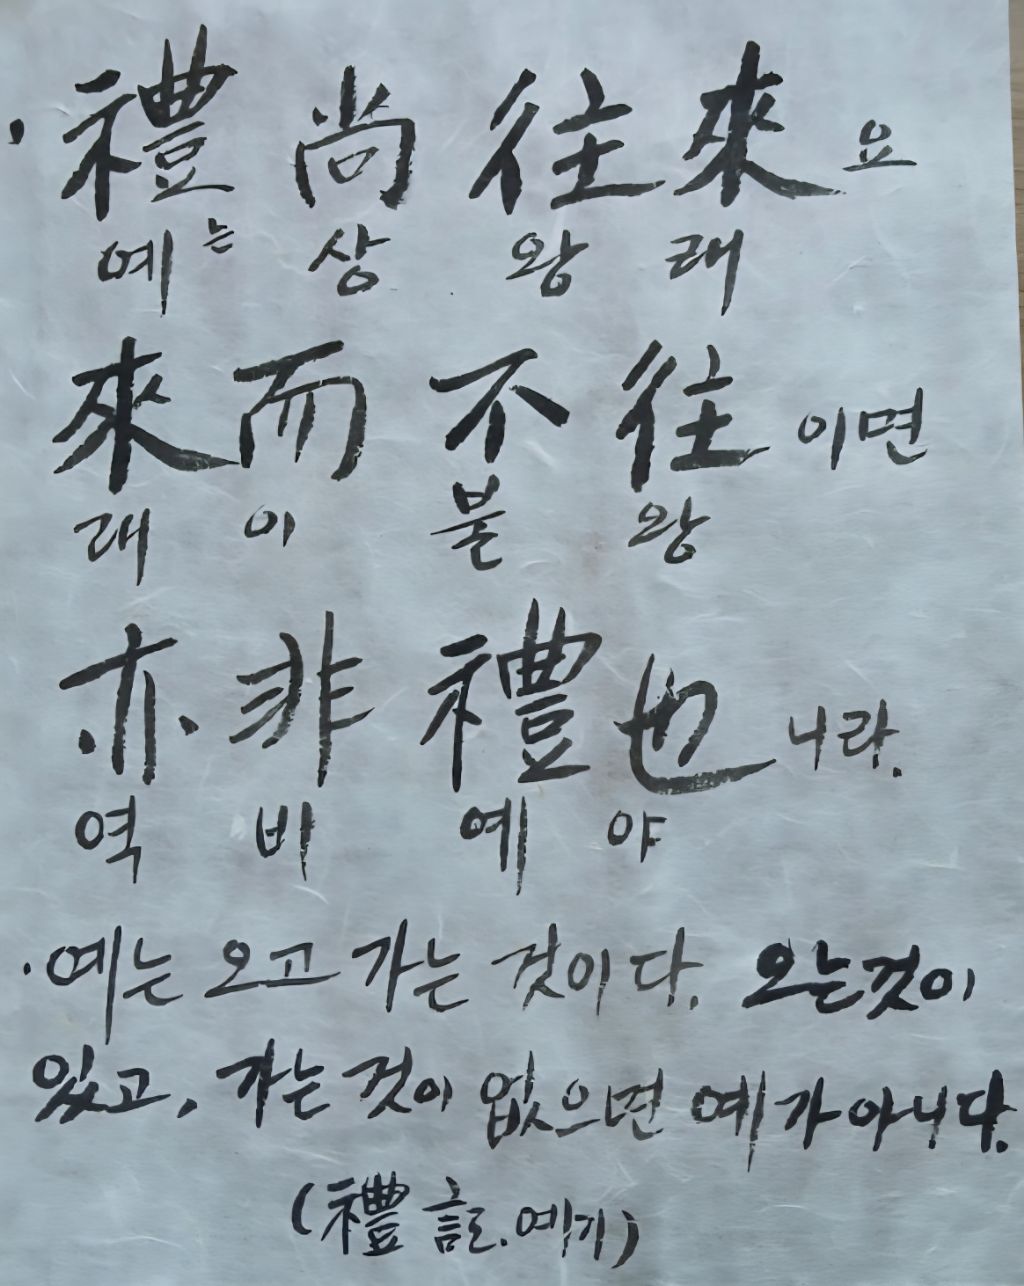 · 禮 尚 往 來 요
예는 상 왕 래
來 而 不 往 이면
래 이 불 왕
亦 非 禮 也 니라.
역 비 예 야
· 예는 오고 가는 것이다. 오는것이
있고, 가는 것이 없으면 예가 아니다.
(禮 記. 예기)